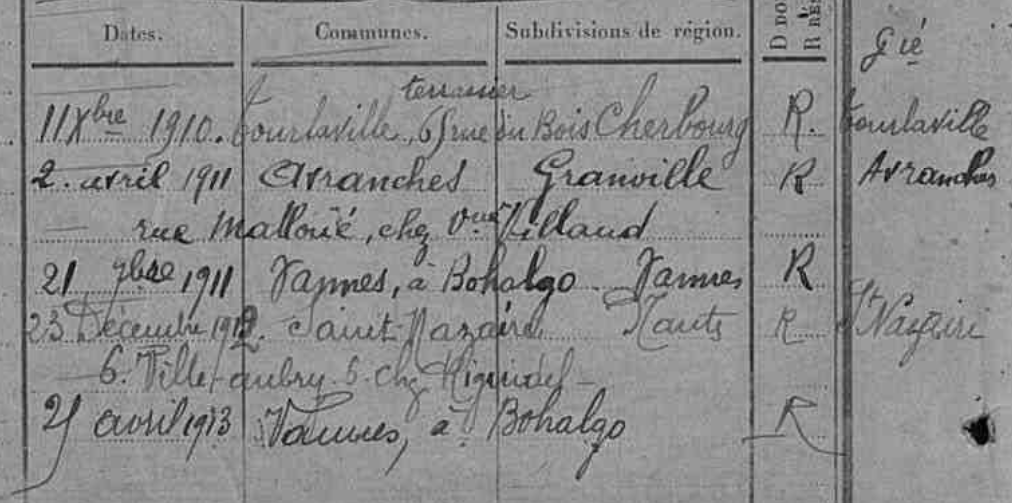 Dates. Communes. Subdivisions de région. D R
Gié
terrassier
11 Xbre 1910. Tourlaville, 65 rue du Bois Cherbourg R. Tourlaville
2. avril 1911 Avranches Granville R Avranches
rue Mallouë, chez Vve Villaud
21 9bre 1911 Vannes, à Bohalgo Vannes R
23 Décembre 1912. Saint-Nazaire Nantes R St Nazaire
6. Ville-aubry 6. chez
25 avril 1913 Vannes, à Bohalgo R